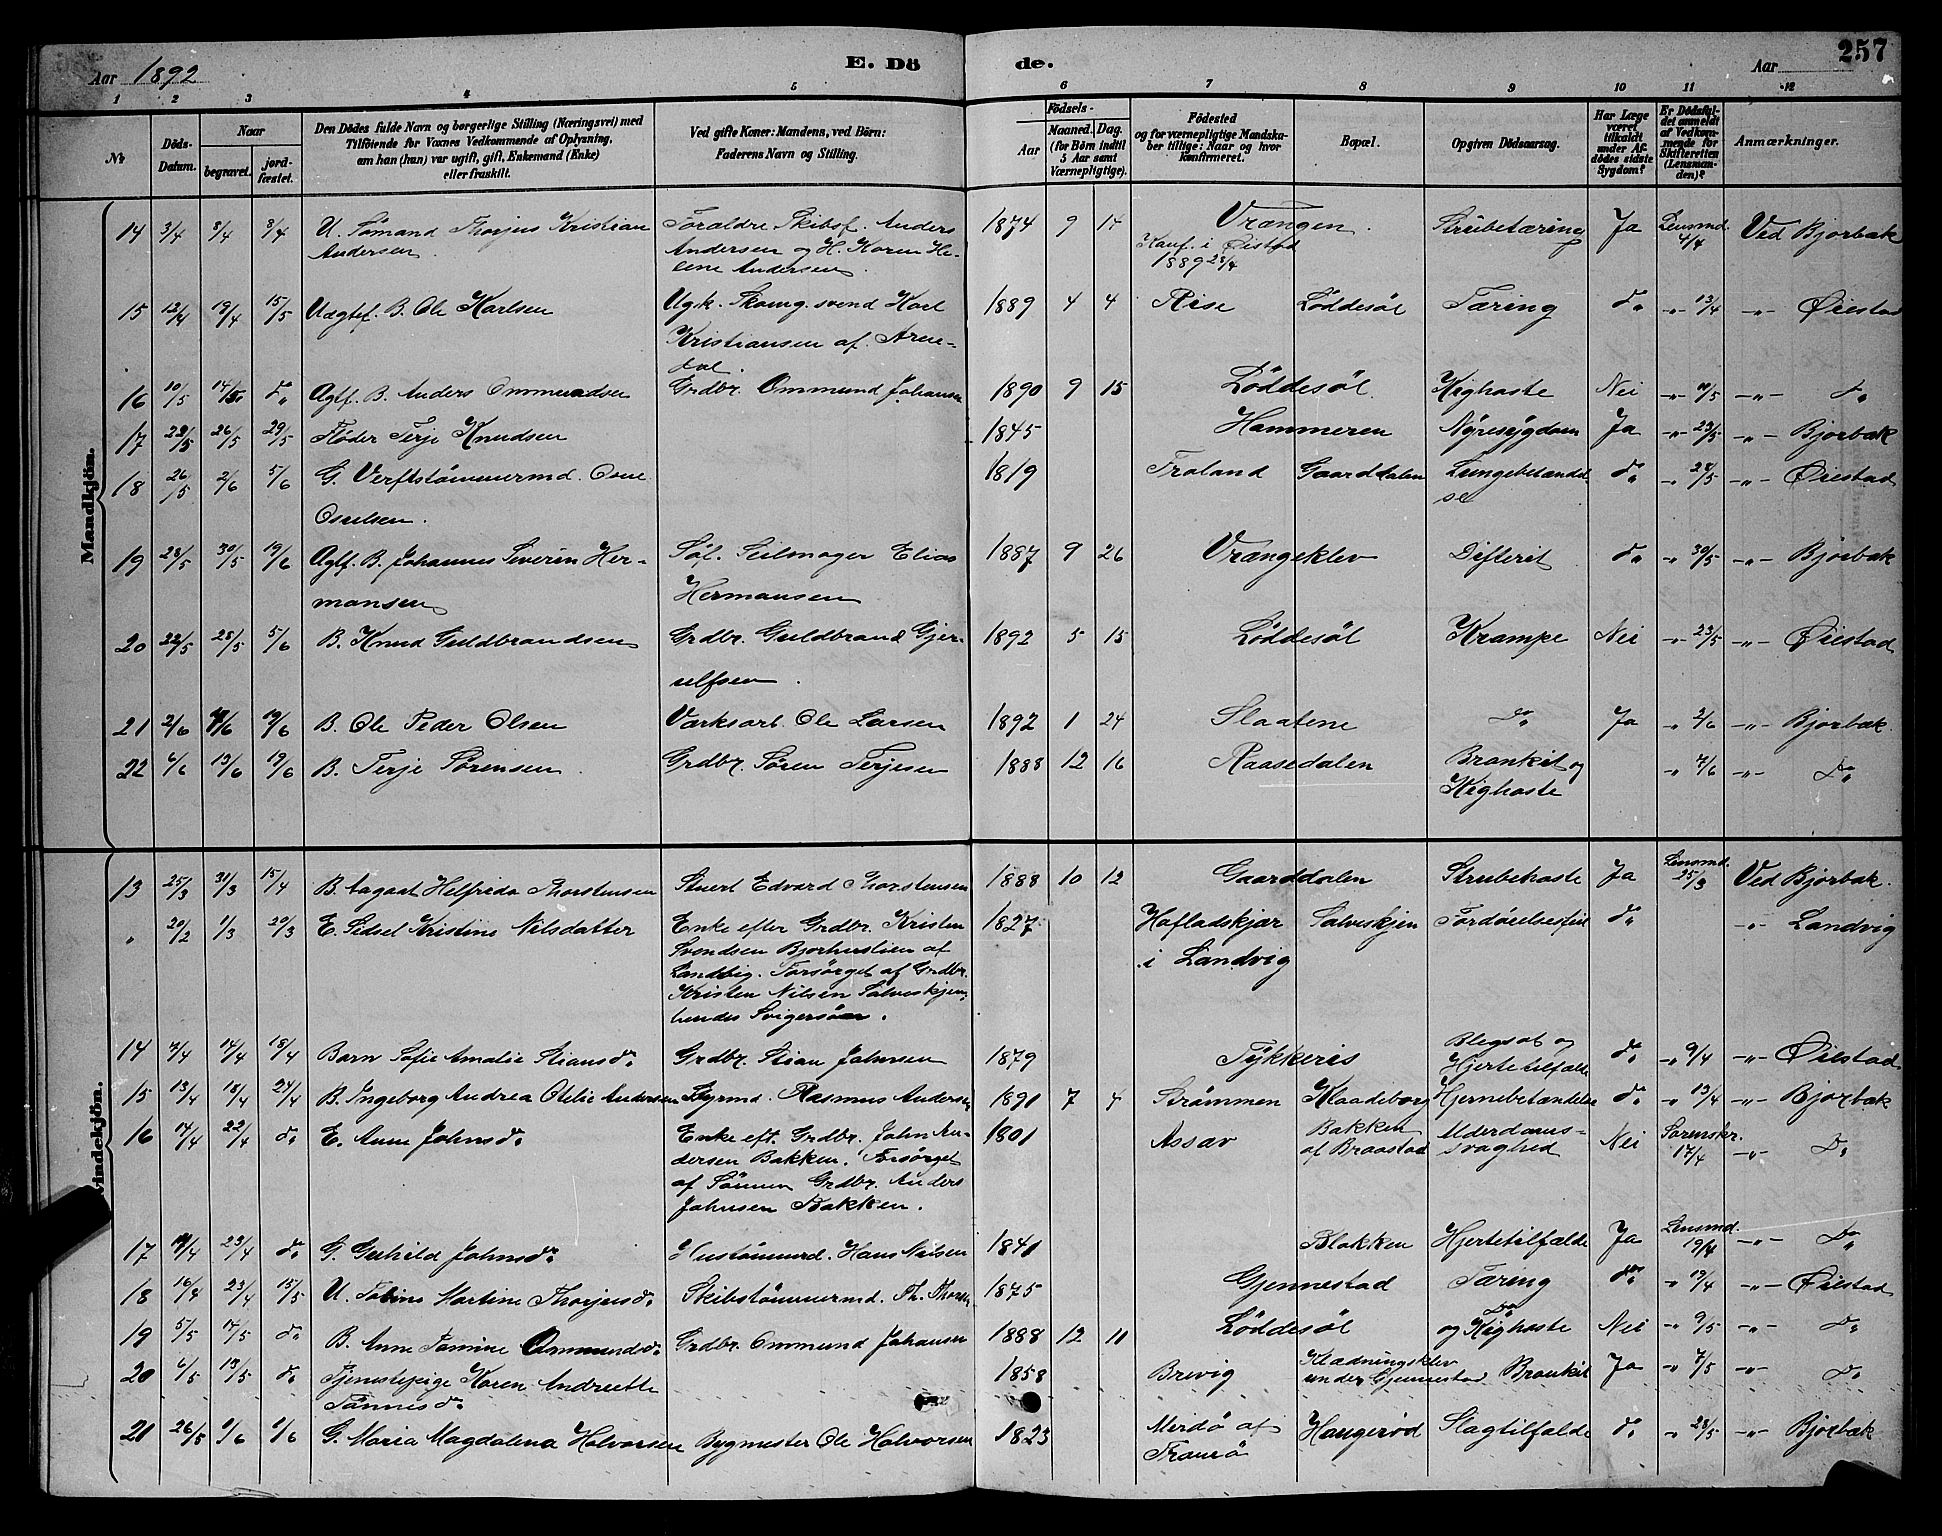 Aar 1892
E. Dö de.
Aar
257
1 2 3 4 5 6 7 8 9 10 11 12
No
Döds-Datum.
Naar
begravet.
jord-fæstet.
Den Dödes fulde Navn og borgerlige Stilling (Næringsvei) med
Tilföiende for Voxnes Vedkommende af Oplysning,
om han (hun) var ugift, gift, Enkemand (Enke)
eller fraskilt.
Ved gifte Koner: Mandens, ved Börn:
Faderens Navn og Stilling.
Födsels-
Aar
Maaned. Dag.
(for Börn indtil
5 Aar samt
Værnepligtige).
Födested
og for værnepligtige Mandska-
ber tillige: Naar og hvor
konfirmeret.
Bopæl.
Opgiven Dödsaarsag.
Har Læge
været
tilkaldt
under Af-
dödes sidste
Sygdom?
Er Dödsfal-
det anmeldt
af Vedkom-
mende for
Skifteretten
(Lensman-
den)?
Anmærkninger.
Mandkjön.
14 3/4 8/4 8/4 U. Sømand Thorjus Kristian Forældre Skibsf. Anders 1874 9 14 Vrængen. Strubetæring Ja Lensmd. 4/4 Ved Bjorbæk
Andersen Andersen og H. Karen He- Konf. i Øistad
lene Andersen 1889 28/4
15 12/4 19/4 15/5 Uægtef. B. Ole Karlsen Ugk. Skomg. svend Karl 1889 4 4 Rise Løddesøl Tæring do -"- 13/4 -"- Øiestad
Kristiansen af Aren-
dal.
16 10/5 14/5 do Ægtf. B. Anders Ommundsen Grdbr. Ommund Johansen 1890 9 15 Løddesøl Kighoste Nei -"- 11/5 -"- do
17 22/5 26/5 29/5 Fløder Terje Knudsen 1845 Hammeren Nyresygdom Ja -"- 23/5 -"- Bjorbæk
18 26/5 2/6 5/6 G. Verftstømmermd. 1819 Froland Gaarddalen Lungebetændel- do -"- 28/5 -"- Øiestad
Osuelsen. se
19 28/5 30/5 19/6 Ægtf. B. Johannes Severin Her- Søf. Seilmager Elias 1887 9 26 Vrængeklev Difterit do -"- 30/5 -"- Bjorbæk
mansen Hermansen
20 22/5 28/5 5/6 B. Knud Guldbrandsen Grdbr. Guldbrand Gjer- 1892 5 15 Løddesøl Krampe Nei -"- 23/5 -"- Øiestad
ulfsen.
21 2/6 /6 19/6 B. Ole Peder Olsen Værksarb. Ole Larsen 1892 1 24 Slaatene do Ja -"- 2/6 -"- Bjorbæk.
22 6/6 13/6 19/6 B. Terje Sørensen Grdbr. Søren Terjesen 1888 12 16 Raasedalen Bronkit og -"- 7/6 -"- Do
Kighoste
Kvindekjön.
13 25/3 31/3 15/4 B. Aagaat Helfrida Thorstensen Stuert Edvard Thorstensen 1888 10 12 Gaarddalen Strubehoste Ja Lensmd. 25/3 Ved Bjorbæk.
" 20/2 1/3 20/3 E. Sidsel Kristine Nilsdatter Enke efter Grdbr. Kristen 1827 Hafladskjær Salveskjen Fordøielsesfeil do -"- Landvig
Svendsen Bjorhuslien af i Landvig
Landvig. Forsørget af Grdbr.
Kristen Nilsen Salveskjen,
hendes Svigersøn.
14 7/4 14/4 18/4 Barn Sofie Amalie Stiansdo Grdbr. Stian Johnsen 1879 Tykkeris Blegsot og do -"- 9/4 -"- Øiestad
Hjertetilfælde
15 13/4 18/4 24/4 B. Ingeborg Andrea Otelie Andersen Styrmd. Rasmus Andersen 1891 7 4 Strømmen Klaadeborg Hjernebetændelse do -"- 13/4 -"- Bjorbæk
16 14/4 22/4 do E. Anne Johnsdo Enke eft. Grdbr. John An- 1801 Assav Bakken Alderdoms- Nei Sorenskr. 17/4 -"- Do
dersen Bakken. Forsørget af Braastad svaghed
af Sønnen Grdbr. Anders
Johnsen Bakken.
17 /4 23/4 do G. Gunhild Johnsdo Hustømmrmd. Hans Nilsen 1841 Blakken Hjertetilfælde Ja Lensmd. 19/4 -"- Do
18 16/4 23/4 15/5 U. Tobine Martine Thorjusdo Skibstømmermd. Th. Thorsen 1875 Gjennestad Tæring do -"- 19/4 -"- Øiestad
19 5/5 17/5 do B. Anne Tomine Ommundsdo Grdbr. Ommund Johansen 1888 12 11 Løddesøl Do og Kighoste Nei -"- 9/5 -"- Do
20 6/5 13/5 do Tjenestepige Karen Andreette 1858 Brevig Klædningsklev Bronkit Ja -"- 7/5 -"- do
Tønnesdo under Gjennestad
21 26/5 1/6 1/6 G. Maria Magdalena Halvorsen Bygmester Ole Halvorsen 1823 Merdø af Haugerød Slagtilfælde do -"- 28/5 -"- Bjorbæk
Tromø